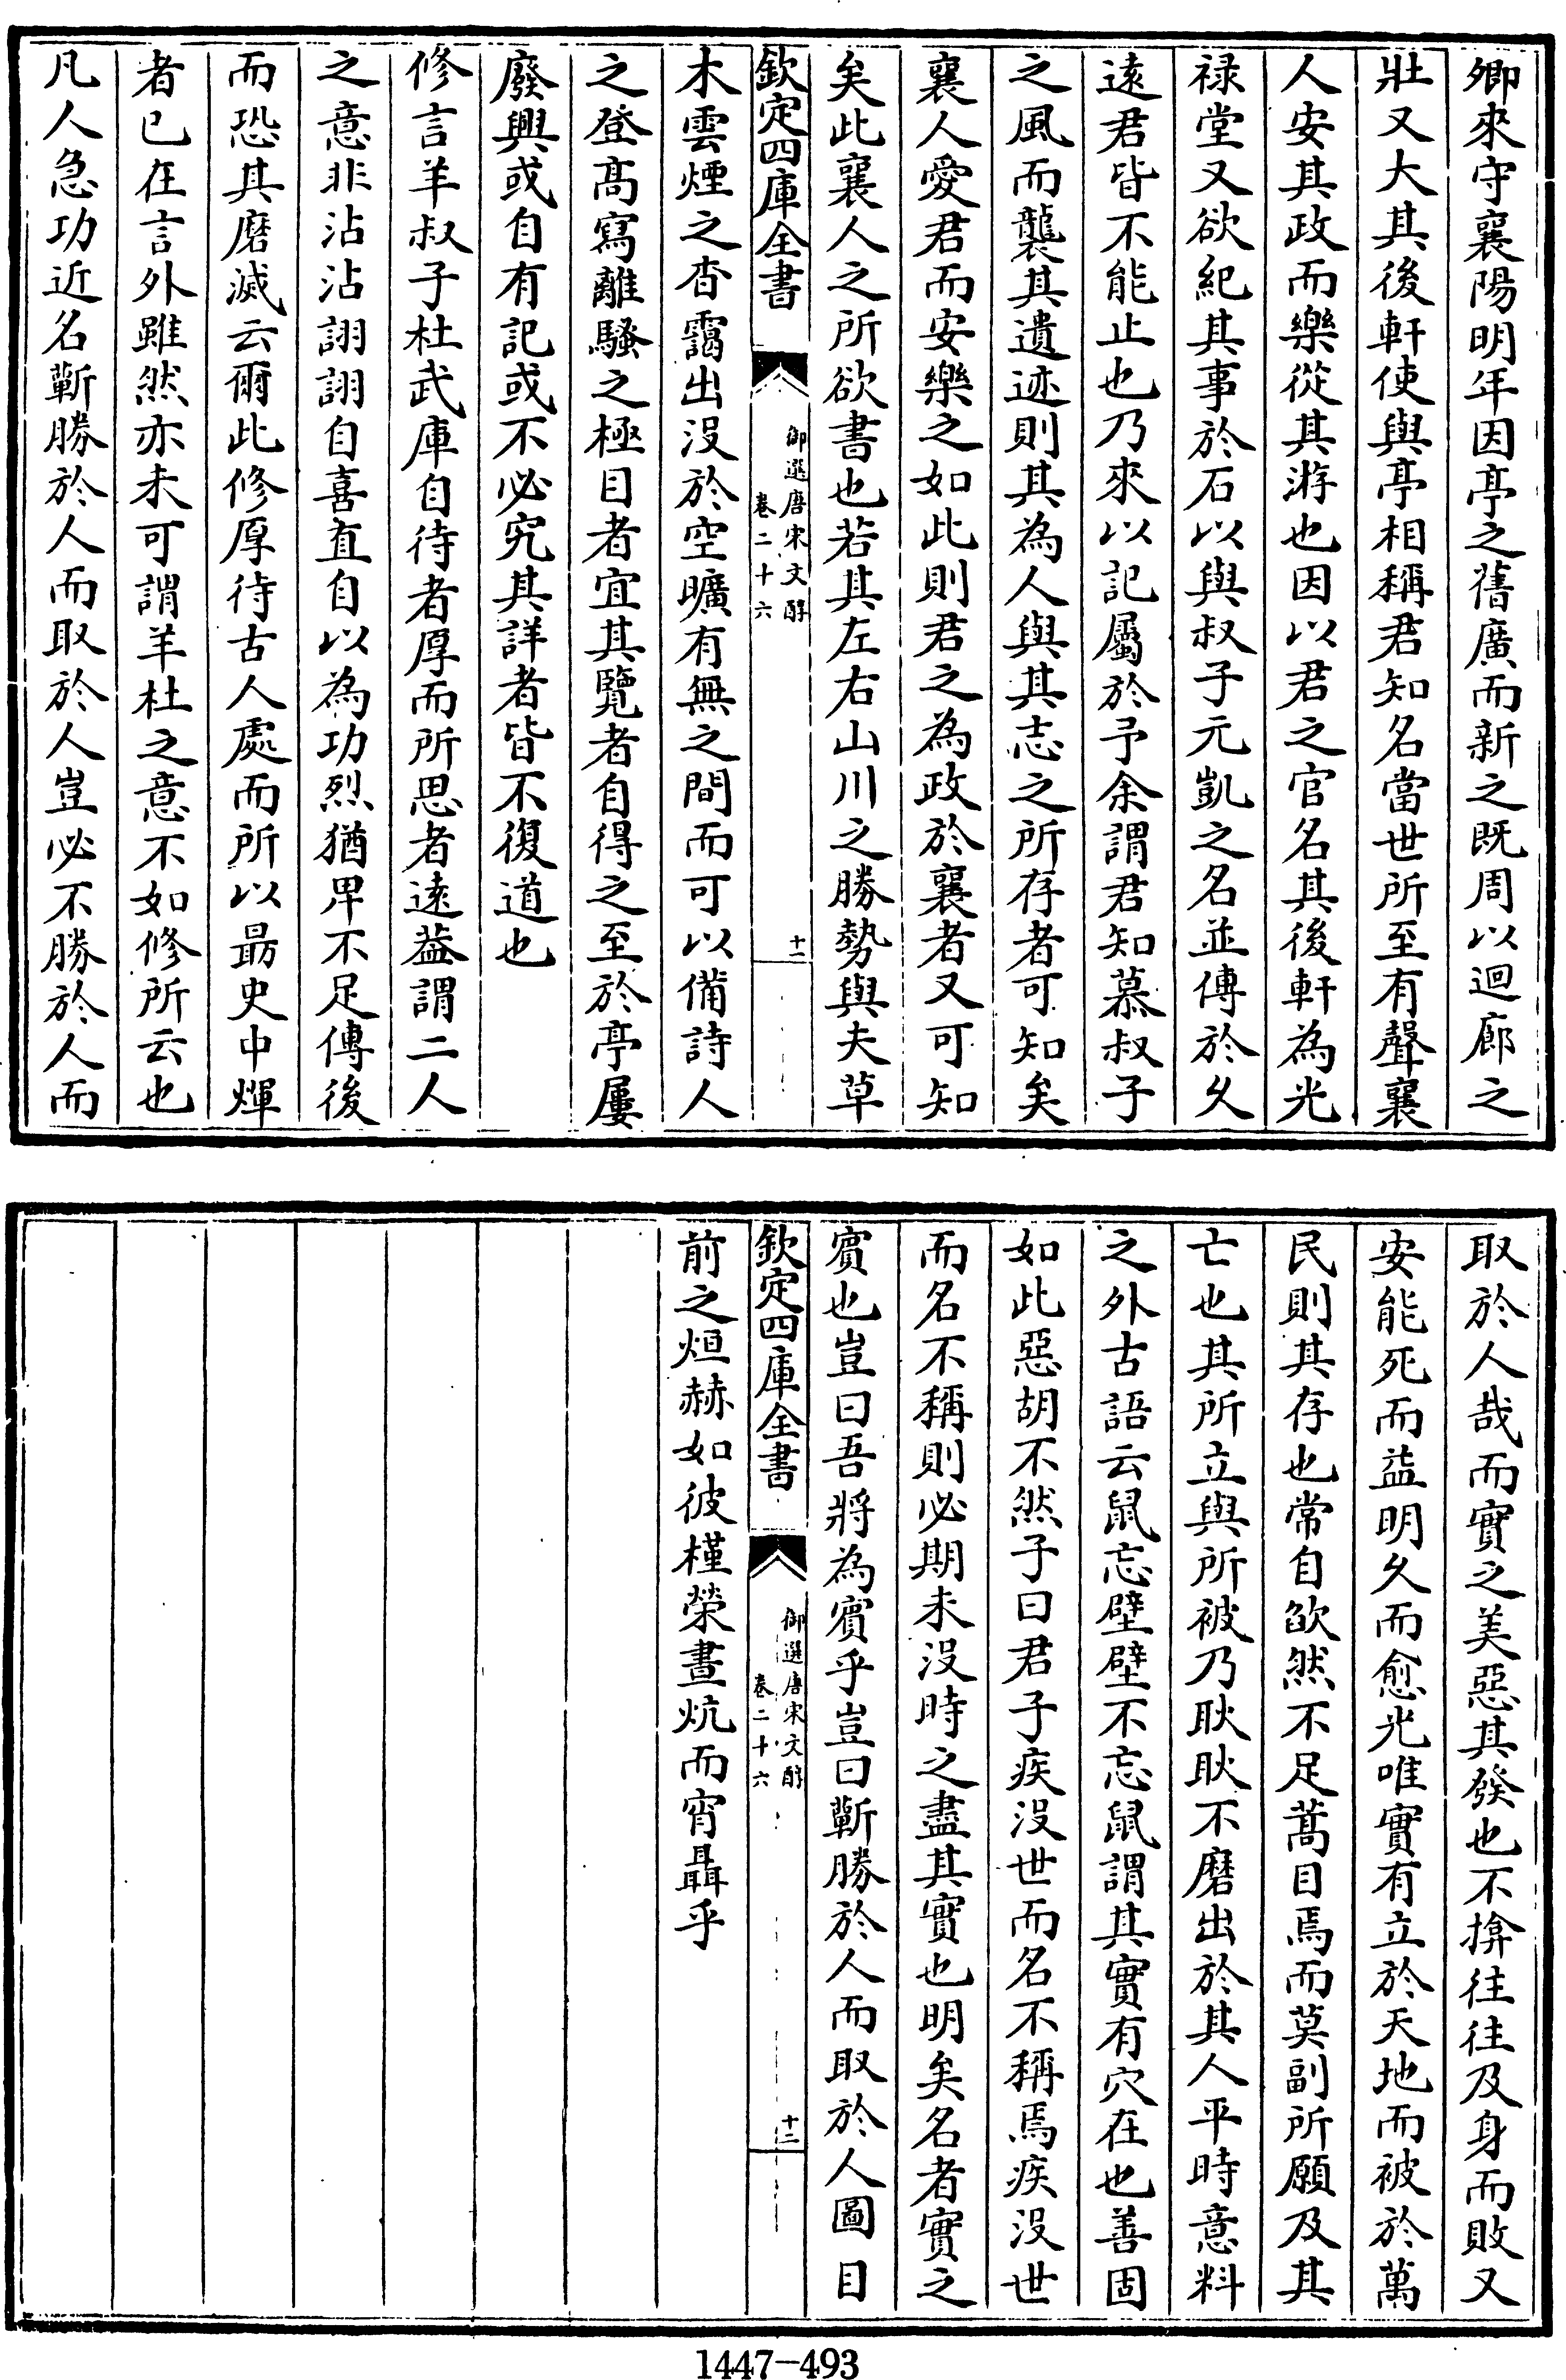 卿來守襄陽明年因亭之舊廣而新之既周以迴廊之
壯又大其後軒使與亭相稱君知名當世所至有聲襄
人安其政而樂從其游也因以君之官名其後軒為光
禄堂又欲紀其事於石以與叔子元凱之名並傳於久
遠君皆不能止也乃來以記屬於予余謂君知慕叔子
之風而襲其遺迹則其為人與其志之所存者可知矣
襄人愛君而安樂之如此則君之為政於襄者又可知
矣此襄人之所欲書也若其左右山川之勝勢與夫草
欽定四庫全書
御選唐宋文醇
卷二十六
十一
木雲煙之杳靄出没於空曠有無之間而可以備詩人
之登高寫離騷之極目者宜其覽者自得之至於亭屢
廢興或自有記或不必究其詳者皆不復道也
修言羊叔子杜武庫自待者厚而所思者遠葢謂二人
之意非沾沾詡詡自喜直自以為功烈猶卑不足傳後
而恐其磨滅云爾此修厚待古人處而所以最史中煇
者已在言外雖然亦未可謂羊杜之意不如修所云也
凡人急功近名蘄勝於人而取於人豈必不勝於人而
取於人哉而實之美惡其發也不揜往往及身而敗又
安能死而益明久而愈光唯實有立於天地而被於萬
民則其存也常自欿然不足蒿目焉而莫副所願及其
亡也其所立與所被乃耿耿不磨出於其人平時意料
之外古語云鼠忘壁壁不忘鼠謂其實有穴在也善固
如此惡胡不然子曰君子疾没世而名不稱焉疾没世
而名不稱則必期未没時之盡其實也明矣名者實之
賓也豈曰吾將為賓乎豈曰蘄勝於人而取於人圖目
欽定四庫全書
御選唐宋文醇
卷二十六
十二
前之烜赫如彼槿榮晝炕而宵聶乎
1447-493